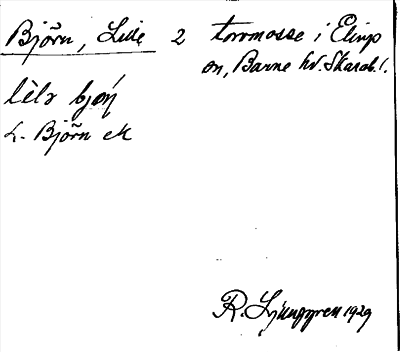 Björn, Lille 2 torvmosse i Elings
sn, Barne hd. Skarab. l.
lèlə bjǿṇ
L. Björn ek
R. Ljunggren 1929